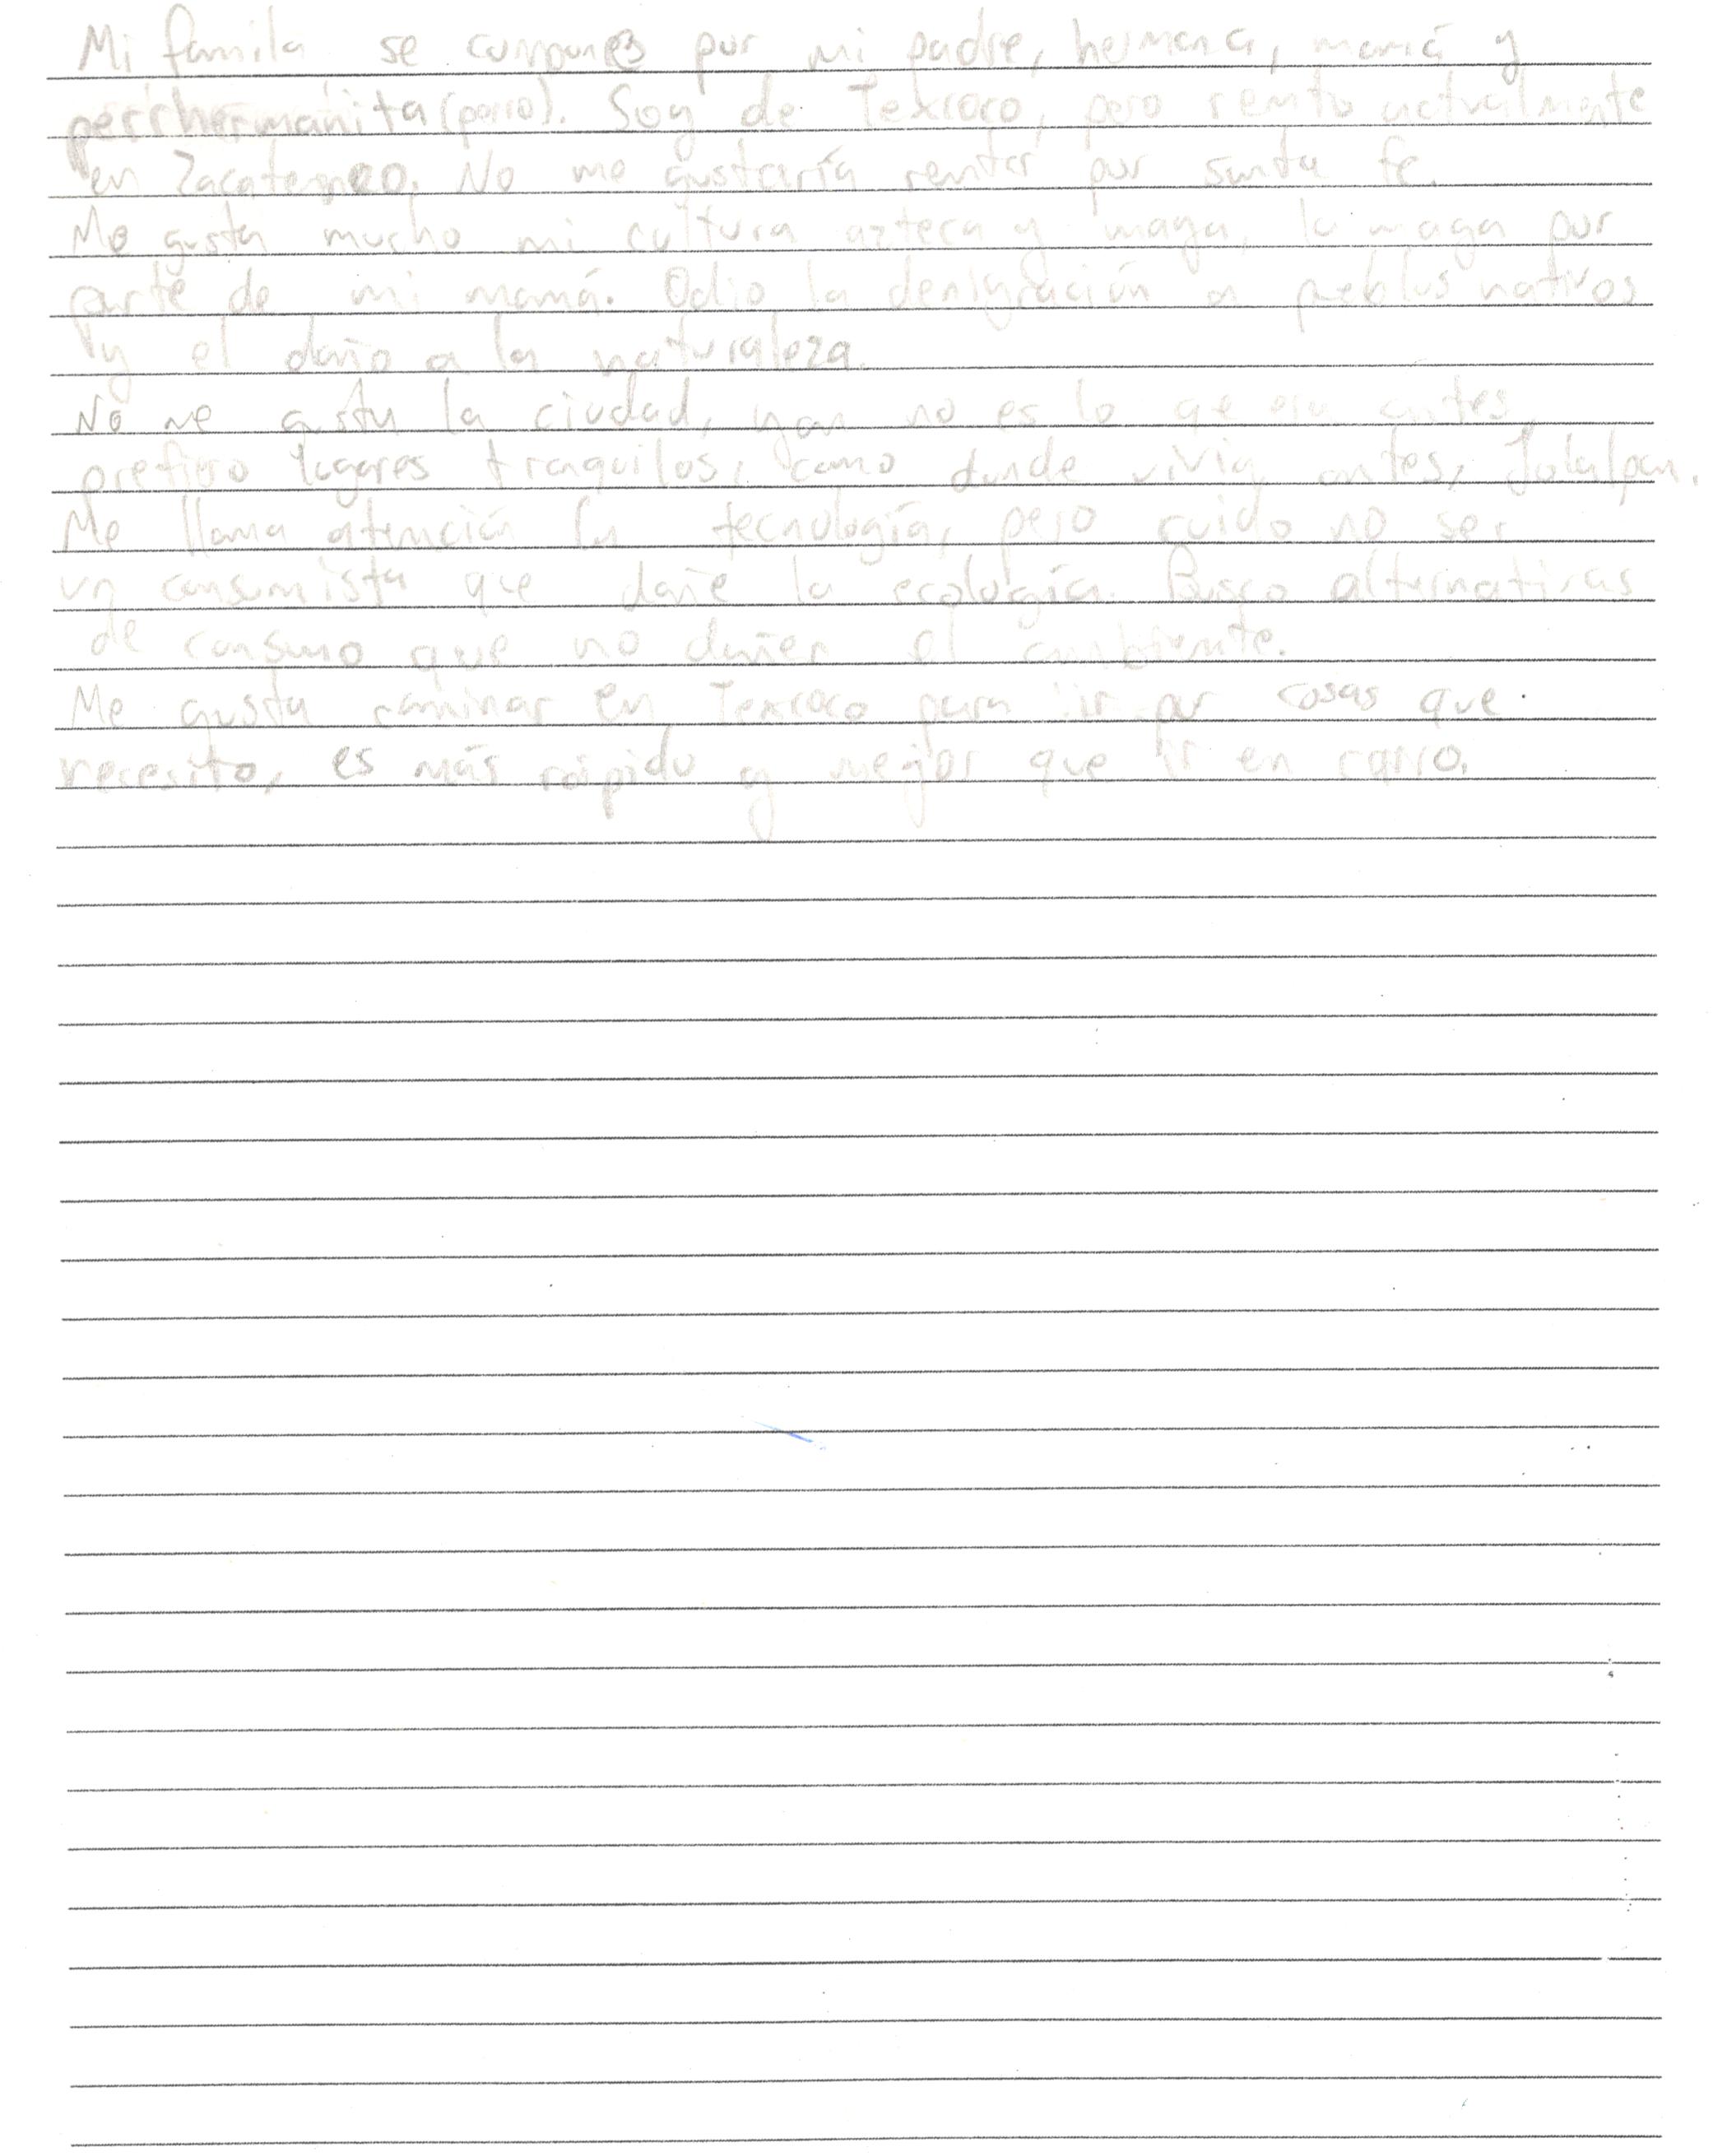 Mi famila se compones por mi padre, hermana, mamá y
perrhermanita (perro). Soy de Texcoco, pero rento actualmente
en No me gustraría rentar por santa fe.
Me gusta mucho mi cultura azteca y maya, la maya por
parte de mi mamá. Odio la denigración a pueblos nativos
y el daño a la naturaleza.
No me gusta la ciudad, ya no es lo que era antes,
prefiero lugares tranquilos, como donde vivia antes, Jolalpan.
Me llama atención la tecnología, pero cuido no ser
un consumista que dañe la ecología. Busco alternativas
de consumo que no dañen el ambiente.
Me gusta caminar en Texcoco para ir por cosas que
necesito, es más rápido y mejor que ir en carro.